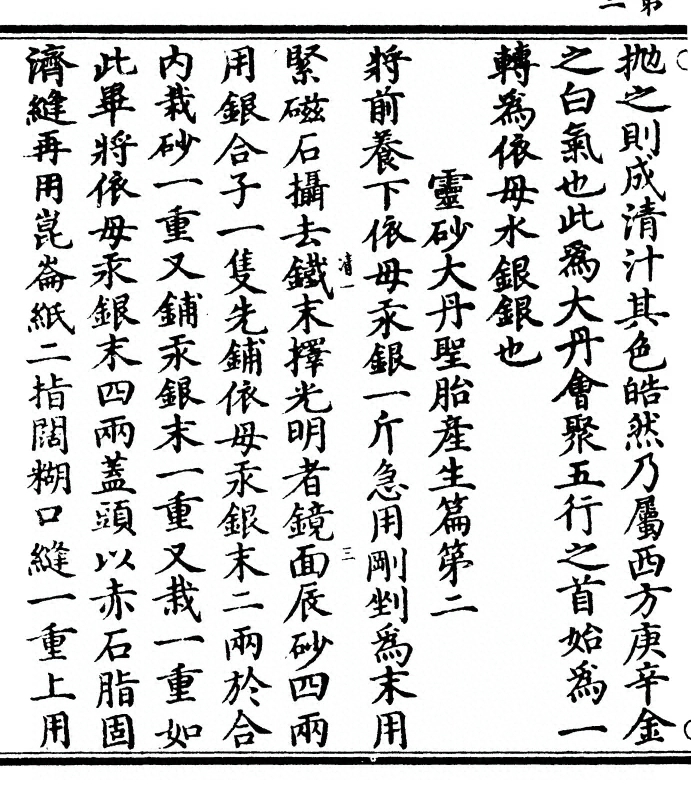 抛之則成清汁其色皓然乃屬西方庚辛金
之白氣也此爲大丹會聚五行之首始爲一
轉爲依母水銀銀也
靈砂大丹聖胎產生篇第二
將前養下依母汞銀一斤急用剛剉爲末用
清一
三
緊磁石攝去鐵末擇光明者鏡面辰砂四兩
用銀合子一隻先鋪依母汞銀末二兩於合
内栽砂一重又鋪汞銀末一重又栽一重如
此畢將依母汞銀末四兩蓋頭以赤石脂固
濟縫再用崑崙紙二指闊糊口縫一重上用